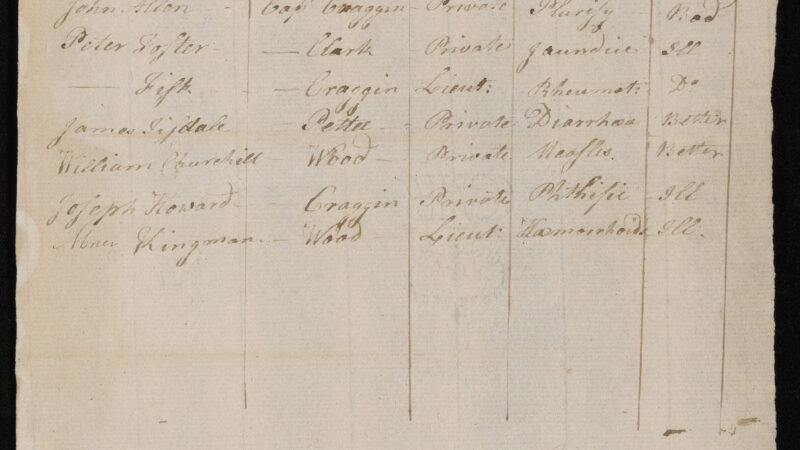 John Allen Cap Craggin - Private Plurisy - Bad
Peter Foster - - Clark Private Jaundice Ill
— Fisk Craggin Lieut: Rheumat: Do
James Tisdale Pettee - Private Diarrhœa Better
William Churchill - Wood - Private Measles. Better
Joseph Howard - Craggin Private Phthisic - Ill
Abner Kingman. - Wood Lieut: Hœmorrhoids Ill.